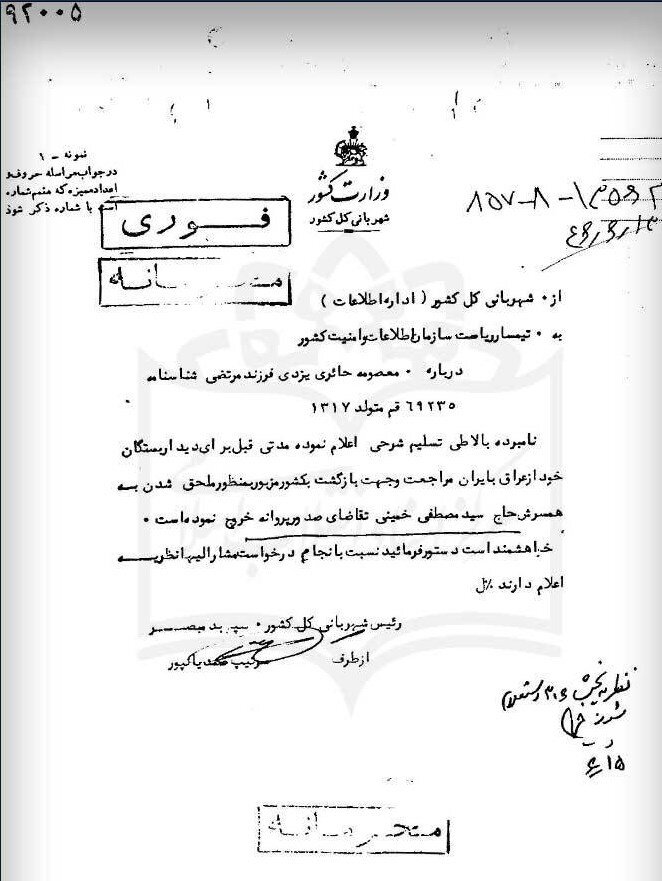 ۹۲۰۰۵
نمونه - ۱
در جواب مراسله حروف و
اعداد ممیزه که منضم شماره
است با شماره ذکر شود
وزارت کشور
شهربانی کل کشور
فوری
محرمانه
از • شهربانی کل کشور ( اداره اطلاعات )
به • تیمسار ریاست سازمان اطلاعات و امنیت کشور
درباره • معصومه حائری یزدی فرزند مرتضی شناسنامه
۶۹۲۳۵ قم متولد ۱۳۱۷
نامبرده بالا طی تسلیم شرحی اعلام نموده مدتی قبل برای دیدار بستگان
خود از عراق بایران مراجعت وجهت بازگشت بکشور مزبور بمنظور ملحق شدن به
همسرش حاج سید مصطفی خمینی تقاضای صدور پروانه خروج نموده است •
خواهشمند است دستور فرمائید نسبت بانجام درخواست مشارالیها نظریه
اعلام دارند
رئیس شهربانی کل کشور • سپهبد مبصر
از طرف
نظریه بخش ۳۱۶ استعلام
شود
۱۵
محرمانه